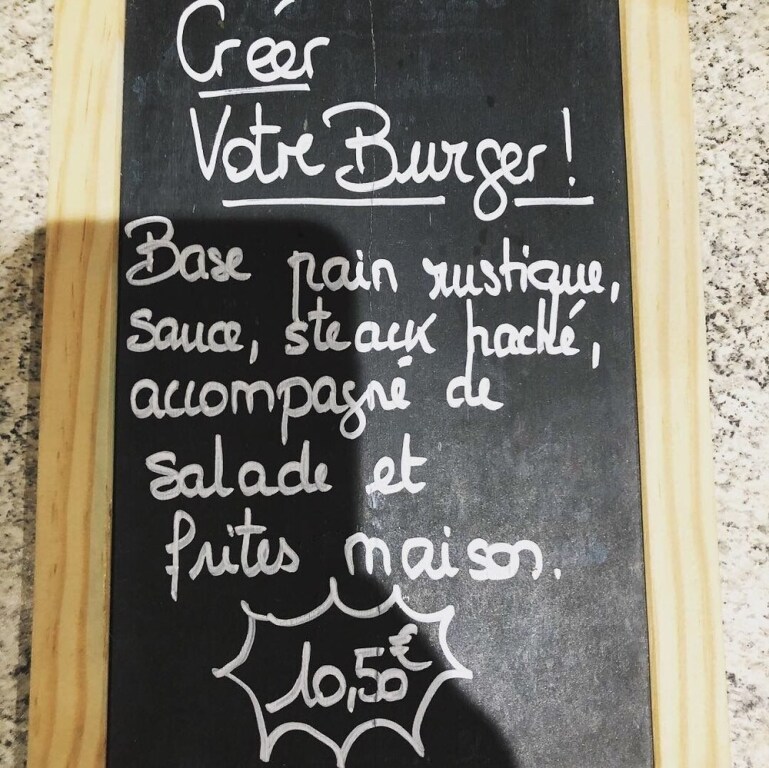 Créer
Votre Burger !
Base pain rustique,
sauce, steack haché,
accompagné de
salade et
frites maison.
10,50€